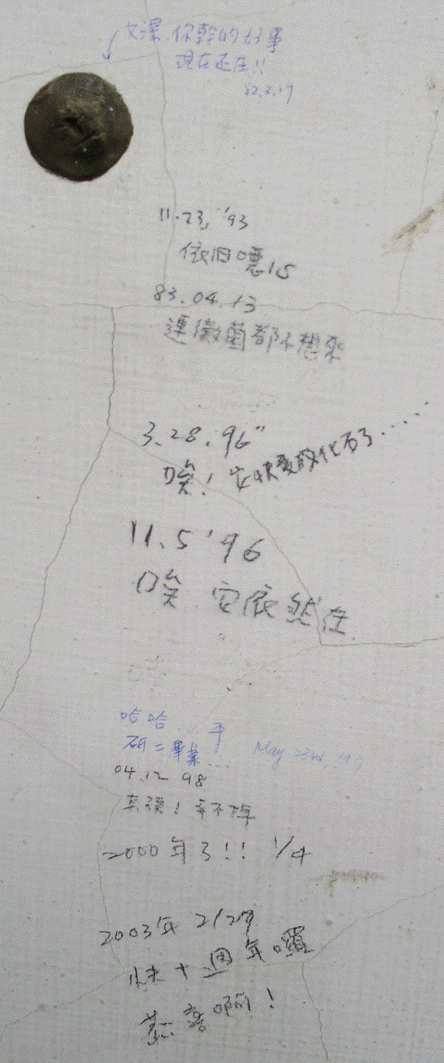 文澤 你幹的好事
現在还在!!
82.3.17
11.23, '93
依旧噁心
83.04.13
連黴菌都不想來
3.28.96"
唉! 它快變成化石了......
11.5 '96
唉 它依然在
哈哈...
研二畢業....
May 22nd,
04.12 98
幸不掉
2000年了!! 1/4
2003年 2/27
快十週年囉
恭喜啊!